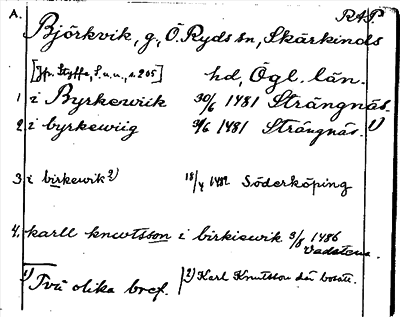 A. RAP
Björkvik, g., Ö. Ryds sn, Skärkinds
[Jfr. Styffe, S. u. u., s. 205] hd, Ögl. län.
1 i Byrkewiik 30/6 1481 Strängnäs.
2. i byrkewiig 30/6 1481 Strängnäs. 1)
3 i birkewik 2) 18/4 1482 Söderköping
4. karll knwtsson i birkiewik 3/8 1486
Vadstena.
1) Två olika bref. 2) Karl Knutsson där bosatt.